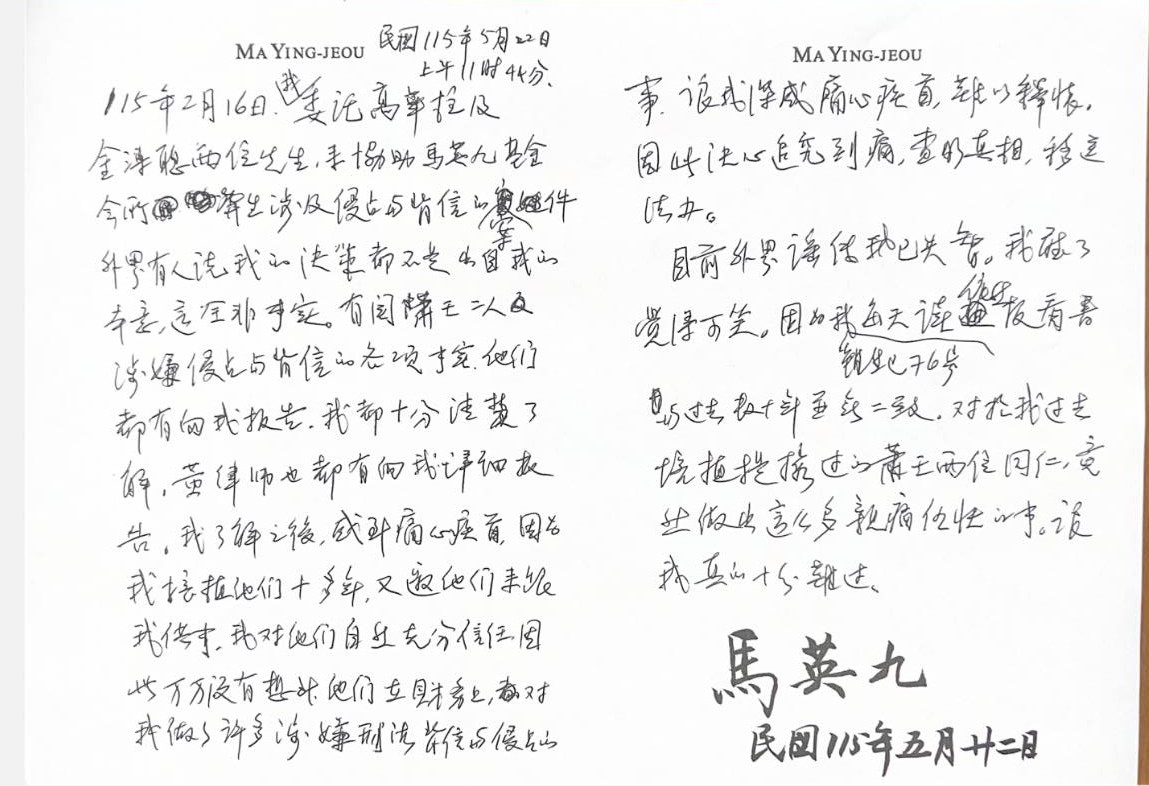 MA YING-JEOU
民國115年5月22日
上午11時44分.
115年2月16日,我委託高華柱及
金溥聰兩位先生,來協助馬英九基金
會所發生涉及侵占与背信的案件
外界有人說我的決策都不是出自我的
本意,這全非事实。有関蕭王二人及
涉嫌侵占与背信的各項事实.他们
都有向我报告.我都十分清楚了
解,黃律师也都有向我详细报
告。我了解之後,感到痛心疾首,因为
我培植他们十多年,又邀他们来跟
我做事,我对他们自然充分信任因
此万万沒有想到他们在財務上,都对
我做了许多涉嫌刑法背信与侵占的
MA YING-JEOU
事.讓我深感痛心疾首,难以釋懷.
因此決心追究到底,查明真相,移送
法办。
目前外界謠传我已失智。我聽了
覺得可笑。因为我每天读報看書
雖然已76岁
与过去数十年並無二致.对於我过去
培植提拔过的蕭王兩位同仁,竟
然做出這么多親痛仇快的事。讓
我真的十分難过。
馬英九
民國115年五月廿二日